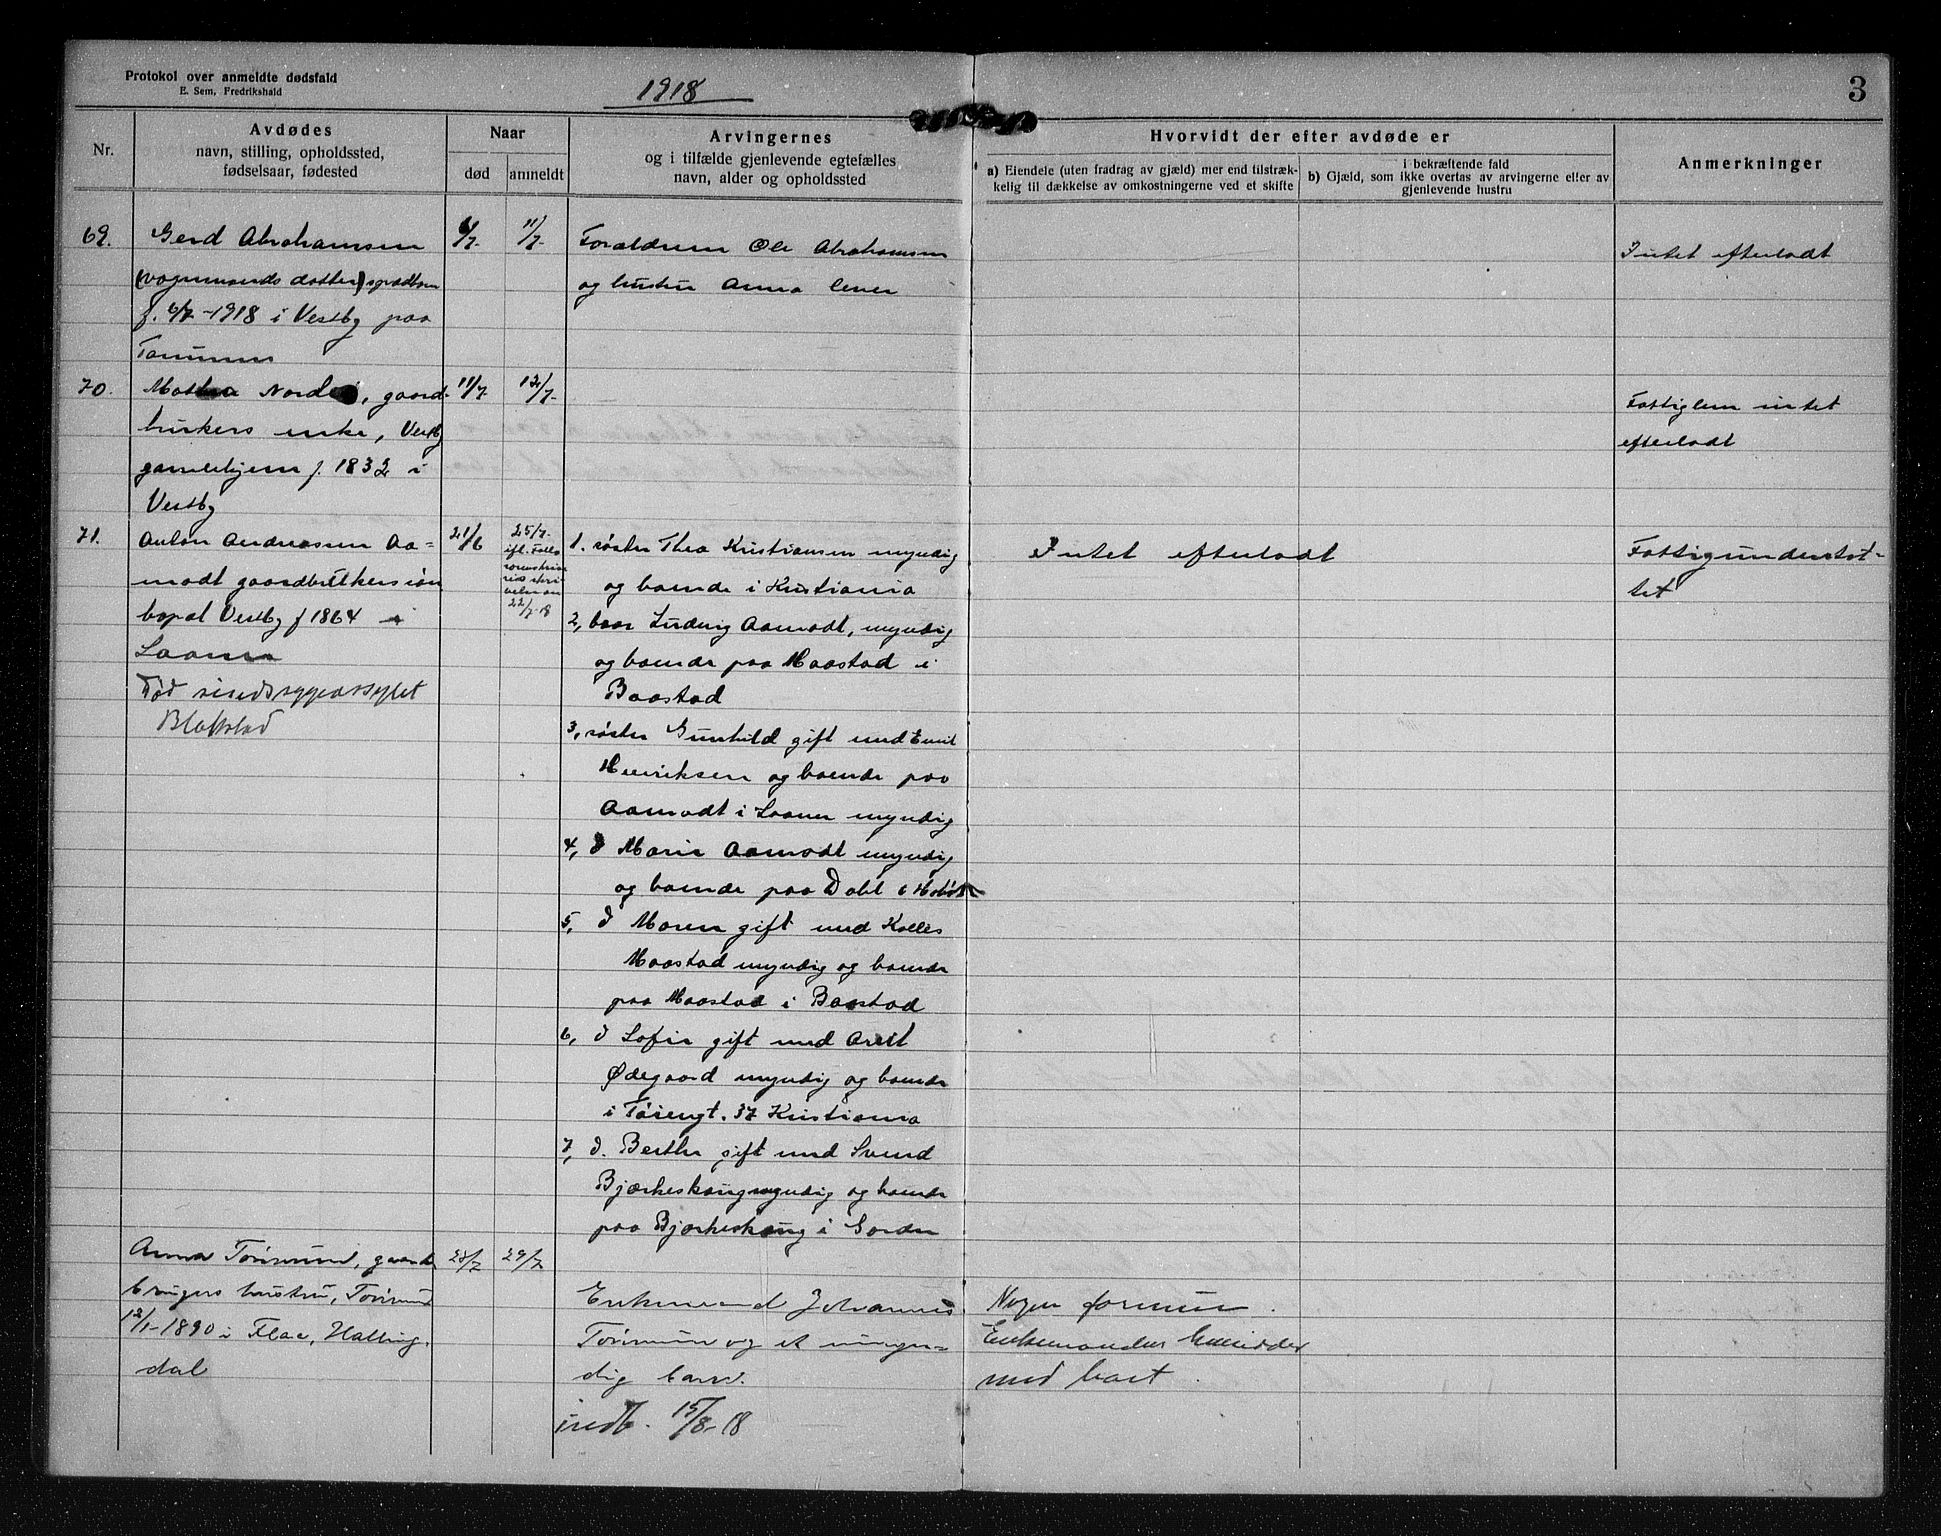 Protokol over anmeldte dødsfald
E. Sem, Fredrikshald
1918
3
Nr.
Avdødes
navn, stilling, opholdssted,
fødselsaar, fødested
Naar
død
anmeldt
Arvingernes
og i tilfælde gjenlevende egtefælles
navn, alder og opholdssted
Hvorvidt der efter avdøde er
a) Eiendele (uten fradrag av gjæld) mer end tilstræk-
kelig til dækkelse av omkostningerne ved et skifte
i bekræftende fald
b) Gjæld, som ikke overtas av arvingerne eller av
gjenlevende hustru
Anmerkninger
69.
Gerd Abrahamsen
(vogmands datter) spædbarn
f. 6/7-1918 i Vestby paa
6/7-
11/7-
Forældrene Ole Abrahamsen
og hustru Anna
Intet efterladt
70.
Nordby, gaard-
brukers enke, Vestby
gamlehjem f. 1832 i
Vestby
11/7-
12/7-
Fattiglem intet
efterladt
71.
Anton Andreassen Aa=
modt gaardbrukersøn
bopæl Vestby f 1864 i
Saaner
Død sindssygeassylet
Blakstad
21/6
25/7-
ifl. Follo
sorenskri
veren
22/7-18
1. søster Thea Kristiansen myndig
og boende i Kristiania
2, bror Ludvig Aamodt, myndig
og boende paa Haastad i
Baastad
3, søster Gunhild gift med Emil
Henriksen og boende paa
Aamodt i Saaner myndig
4, d Marie Aamodt myndig
og boende paa Dahl i Hobøl
5, d Maren gift med Kolles
Haastad myndig og boende
paa Haastad i Baastad
6, d Sofie gift med
Ødegaard myndig og boende
i Tøiengt. 37 Kristiania
7, d. Berthe gift med Svend
Bjærkeskaug myndig og boende
paa Bjærkeskaug i Garder
Intet efterladt
Fattigunderstøt-
tet
Anna Torsrund, gaard-
brugers hustru,
12/1-1890 i Flaa, Halling-
dal
29/7
Enkemand Johannes
og et umyn-
dig barn.
indb. 15/8-18
Nogen formue.
Enkemanden hensidder
med boet.